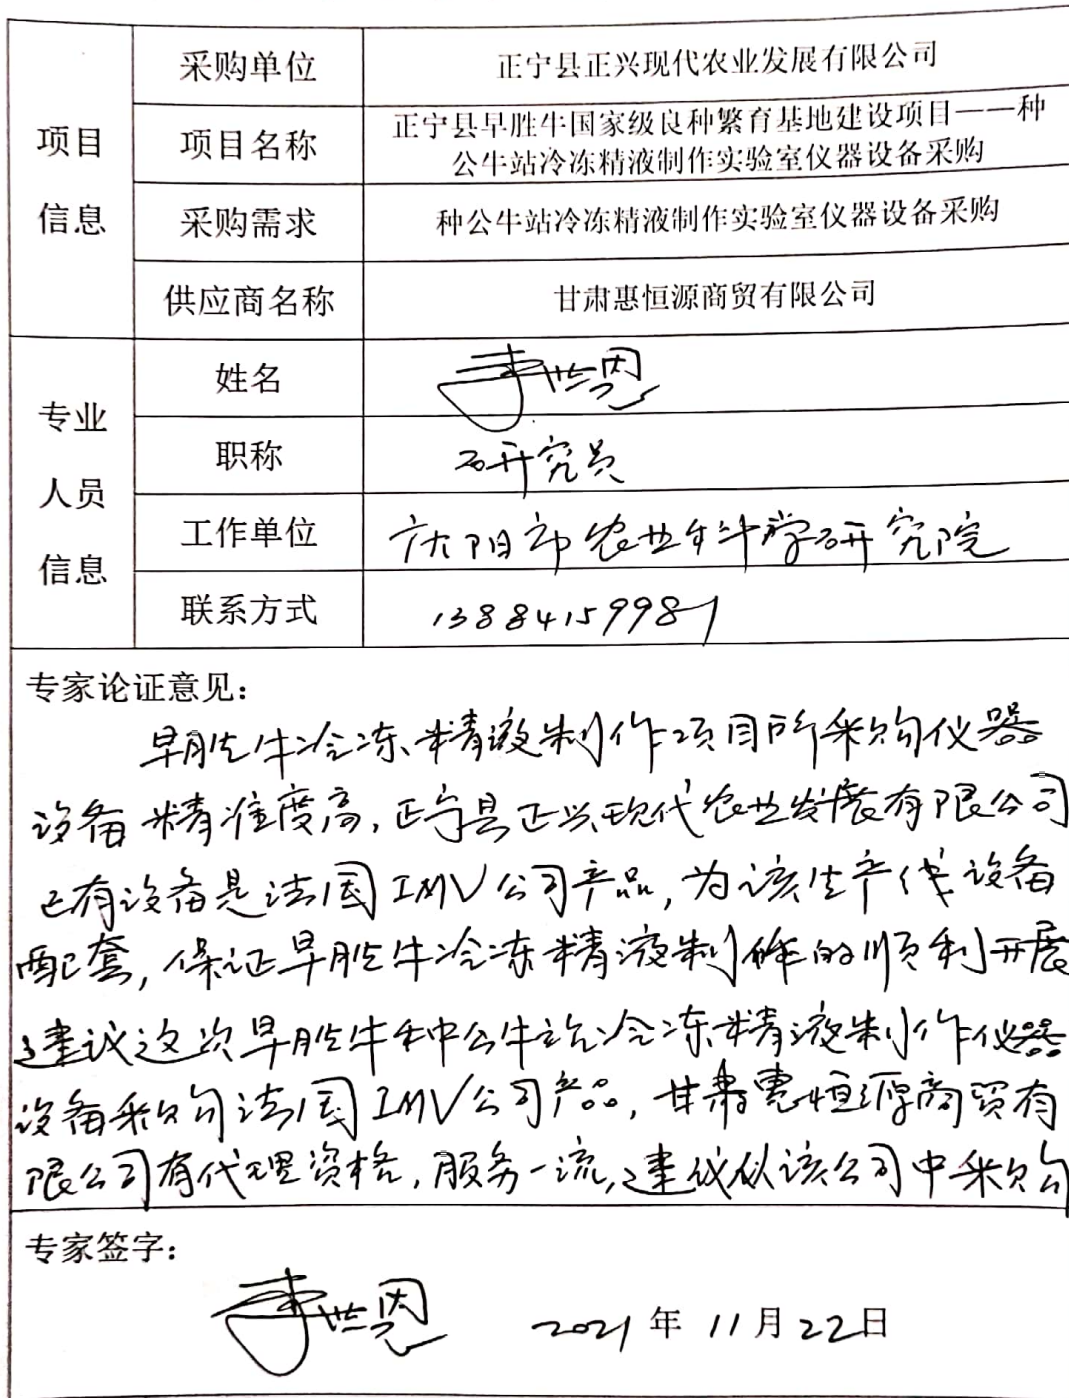 采购单位
正宁县正兴现代农业发展有限公司
项目信息
项目名称
正宁县早胜牛国家级良种繁育基地建设项目——种
公牛站冷冻精液制作实验室仪器设备采购
采购需求
种公牛站冷冻精液制作实验室仪器设备采购
供应商名称
甘肃惠恒源商贸有限公司
专业人员信息
姓名
世恩
职称
研究员
工作单位
庆阳市农业科学研究院
联系方式
13884159987
专家论证意见：
早胜牛冷冻精液制作项目所采购仪器
设备精准度高，正宁县正兴现代农业发展有限公司
已有设备是法国IMV公司产品，为该生产线设备
配套，保证早胜牛冷冻精液制作的顺利开展
建议这次早胜牛种公牛站冷冻精液制作仪器
设备采购法国IMV公司产品，甘肃惠恒源商贸有
限公司有代理资格，服务一流，建议从该公司中采购
专家签字：
世恩
2021年11月22日